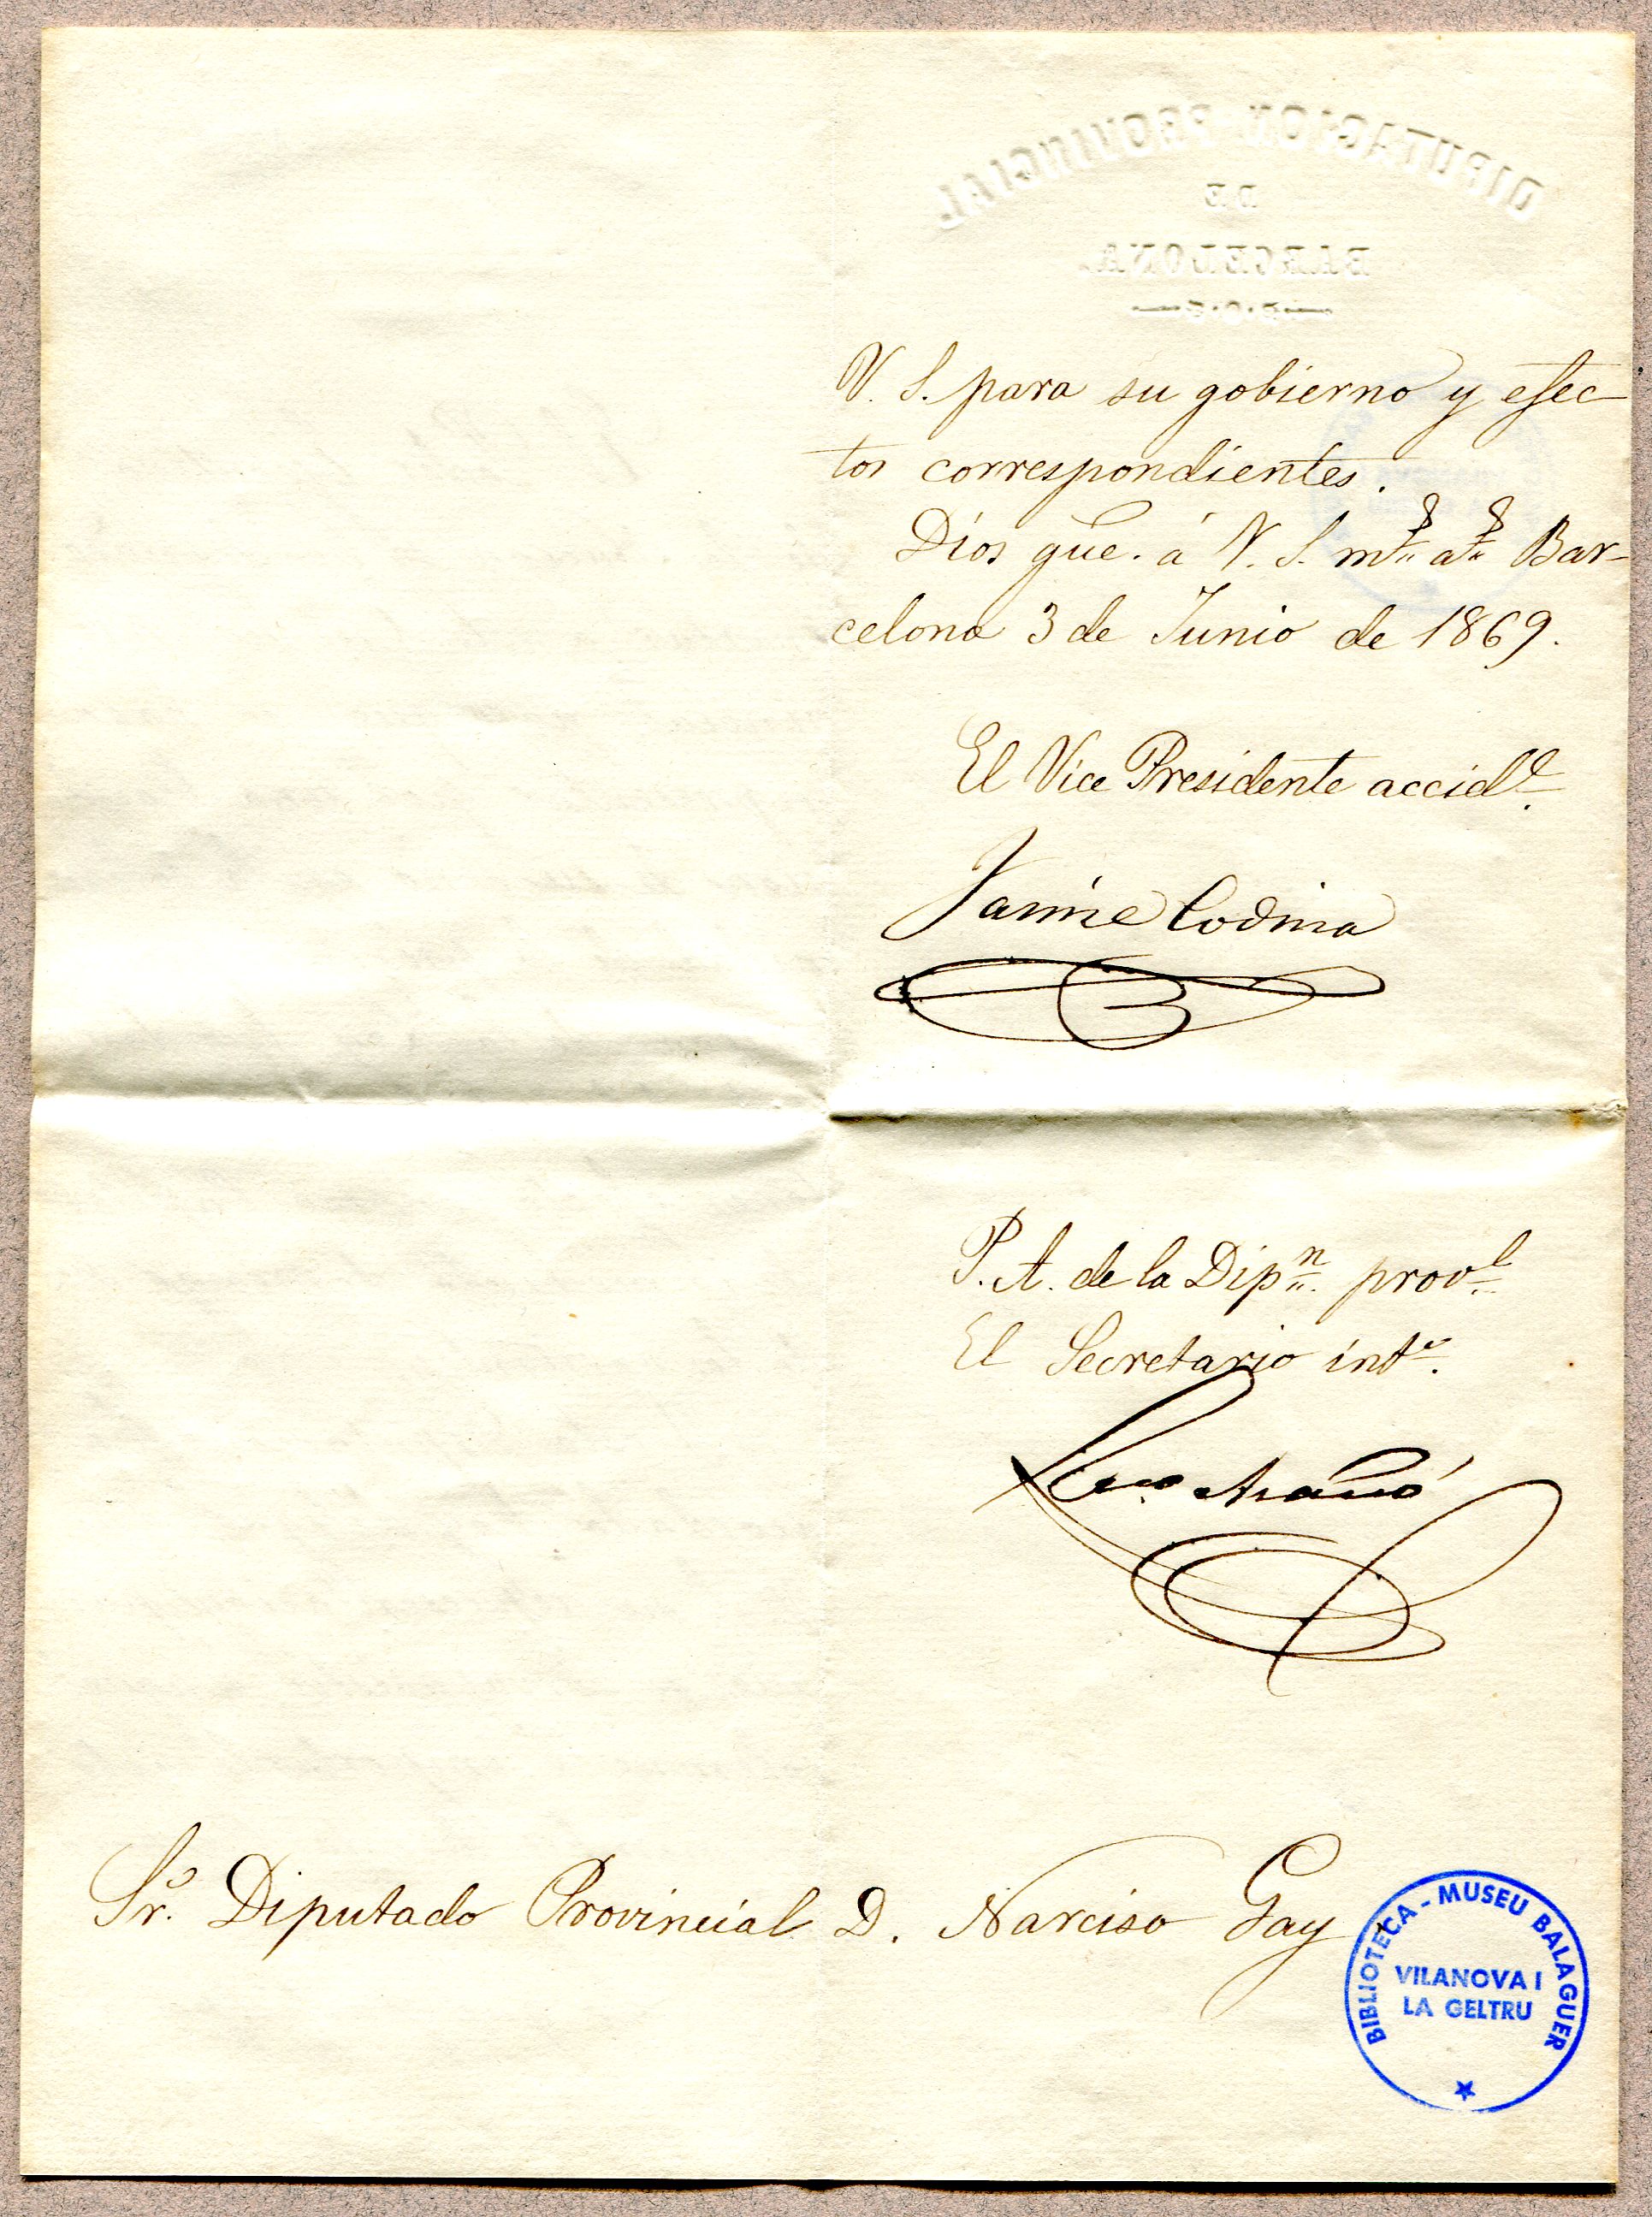 DIPUTACION PROVINCIAL
DE
BARCELONA
V. S. para su gobierno y efec-
tos correspondientes.
Dios gue. á V. S. ms. as. Bar-
celona 3 de Junio de 1869.
El Vice Presidente accidl.
Jaime Codina
P. A. de la Dipn. provl.
El Secretario into.
Sr. Diputado Provincial D. Narciso Gay
BIBLIOTECA - MUSEU BALAGUER
VILANOVA I
LA GELTRU